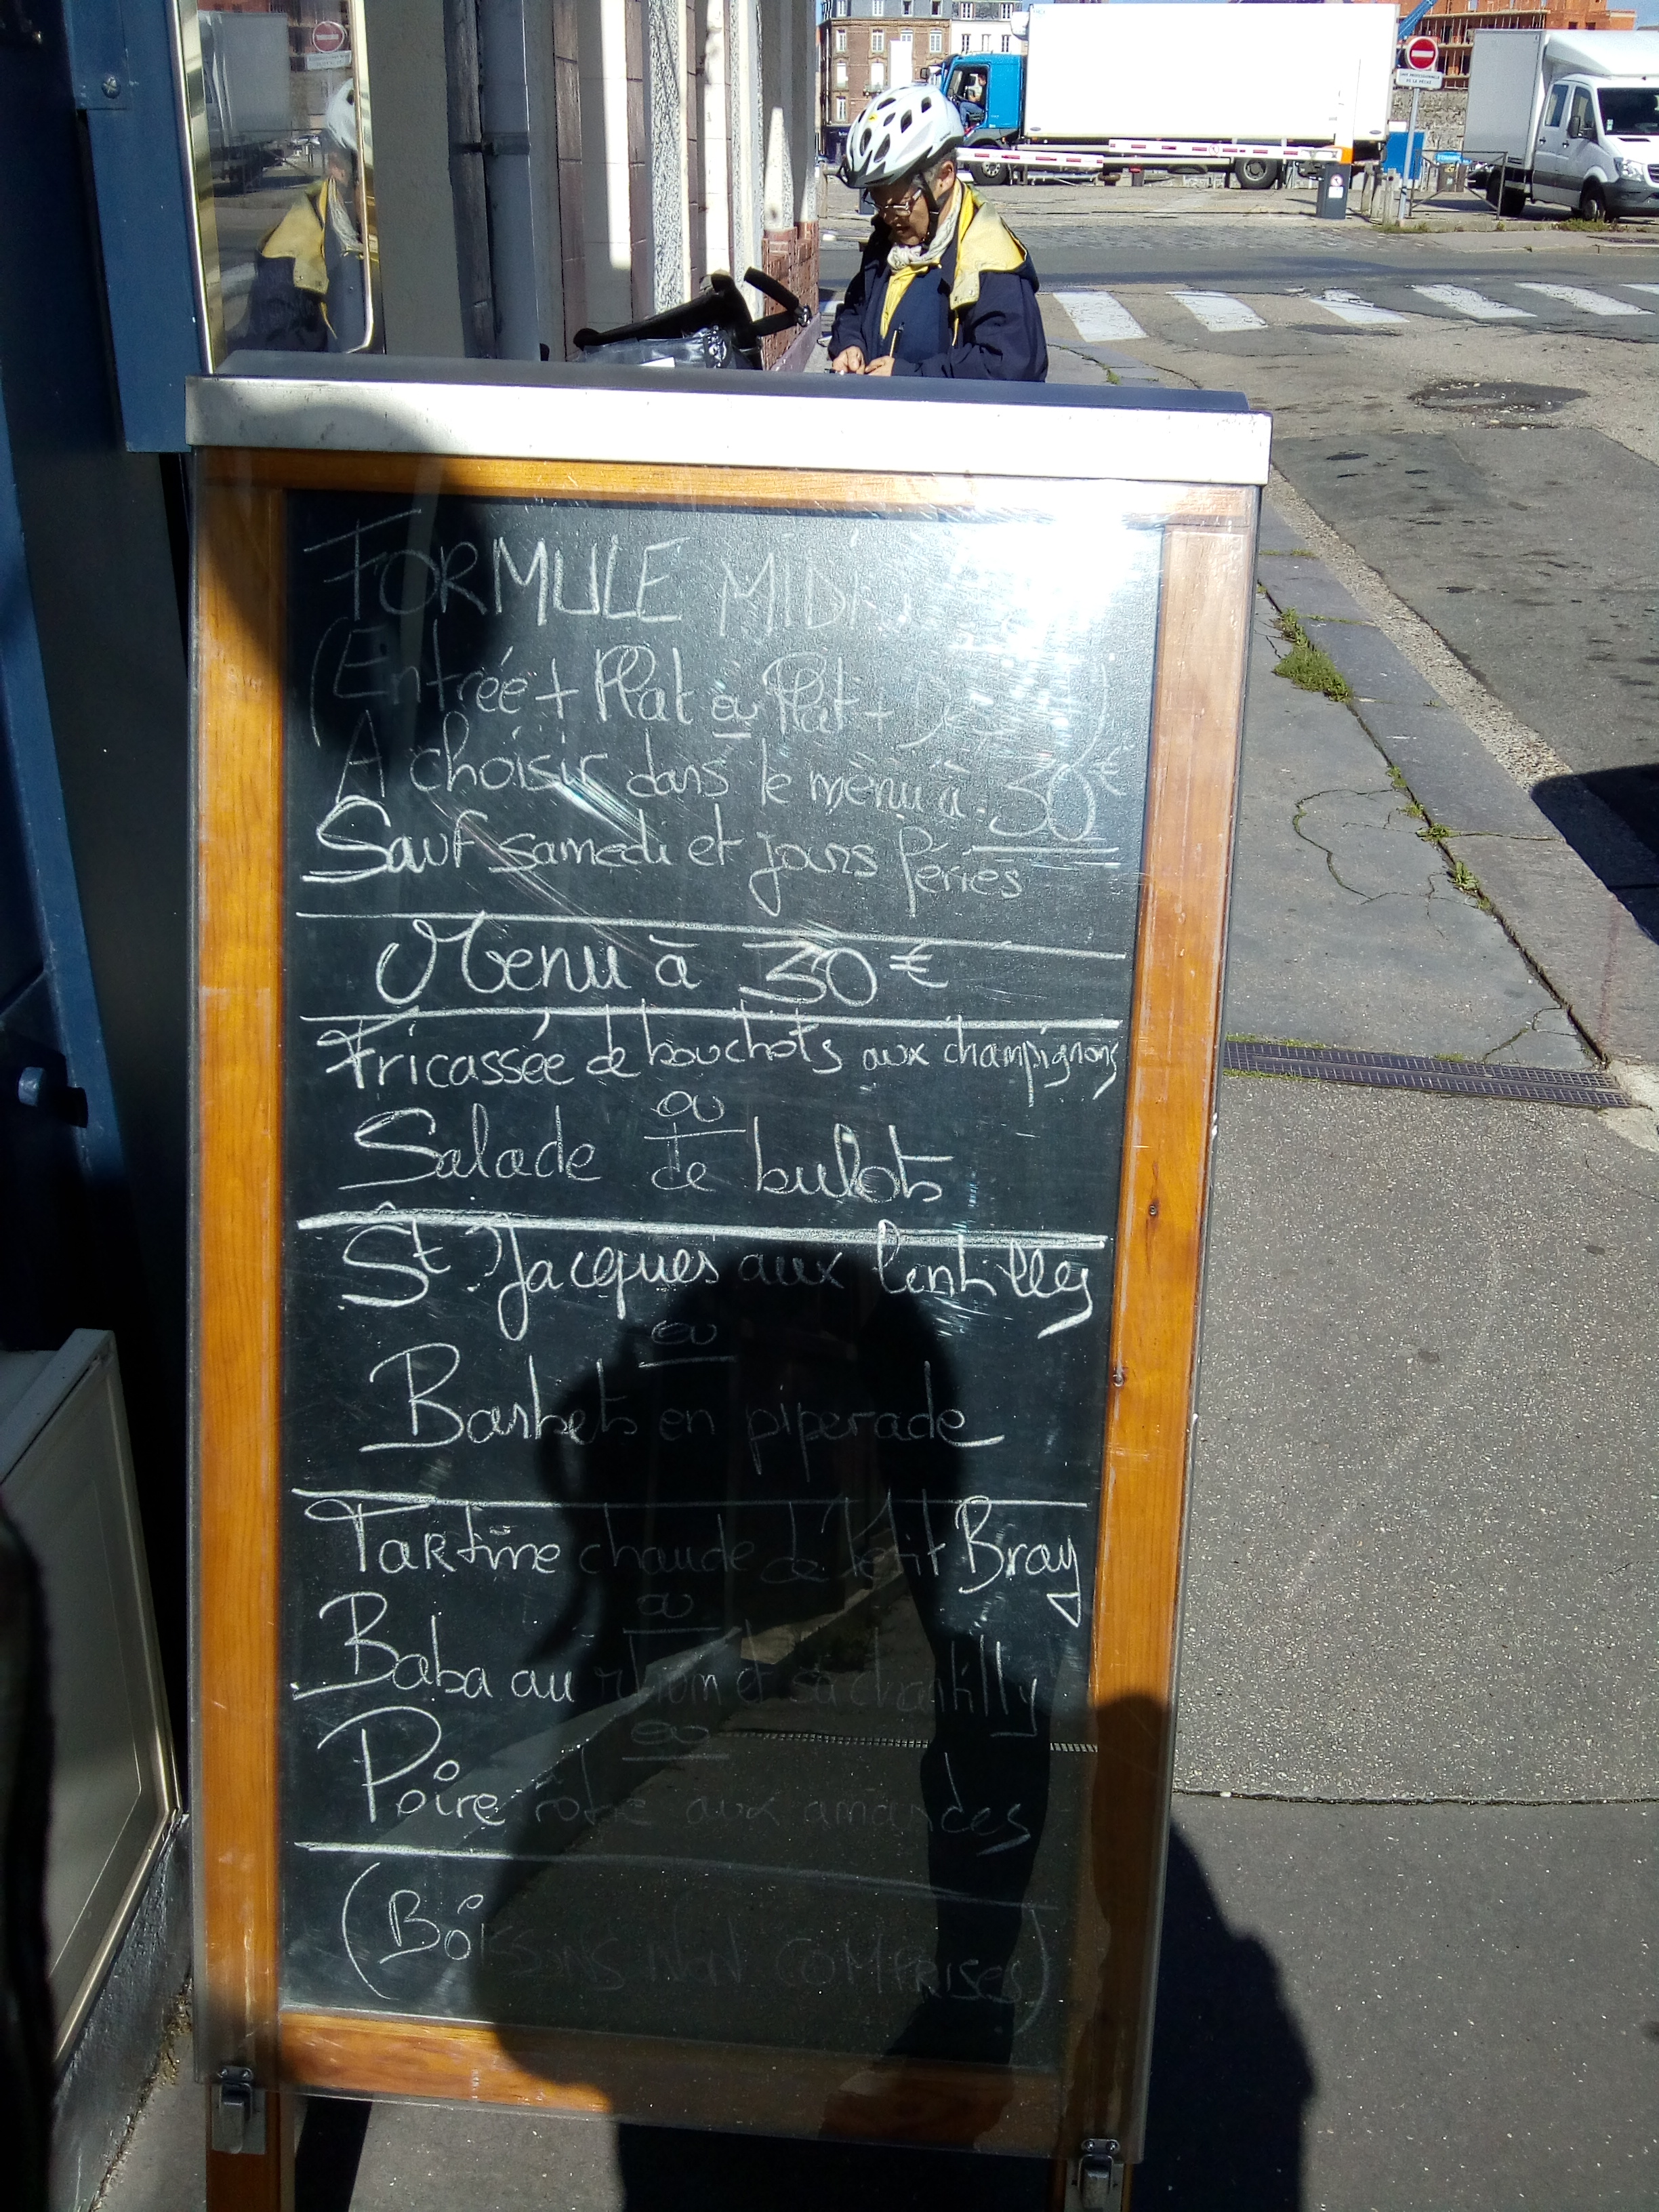 FORMULE MIDI
(Entréé + Plat ou Plat +
A choisir dans le menu à 30€
Sauf samedi et jours fériés
Menu à 30€
Fricassée de bouchots aux champignons
ou
Salade de bulots
St Jacques aux lentilles
ou
Barbets en piperade
Tartine chaude de Petit Bray
ou
Baba au rhum et sa chantilly
ou
Poire rôtie aux amandes
(BOISSONS NON COMPRISES)